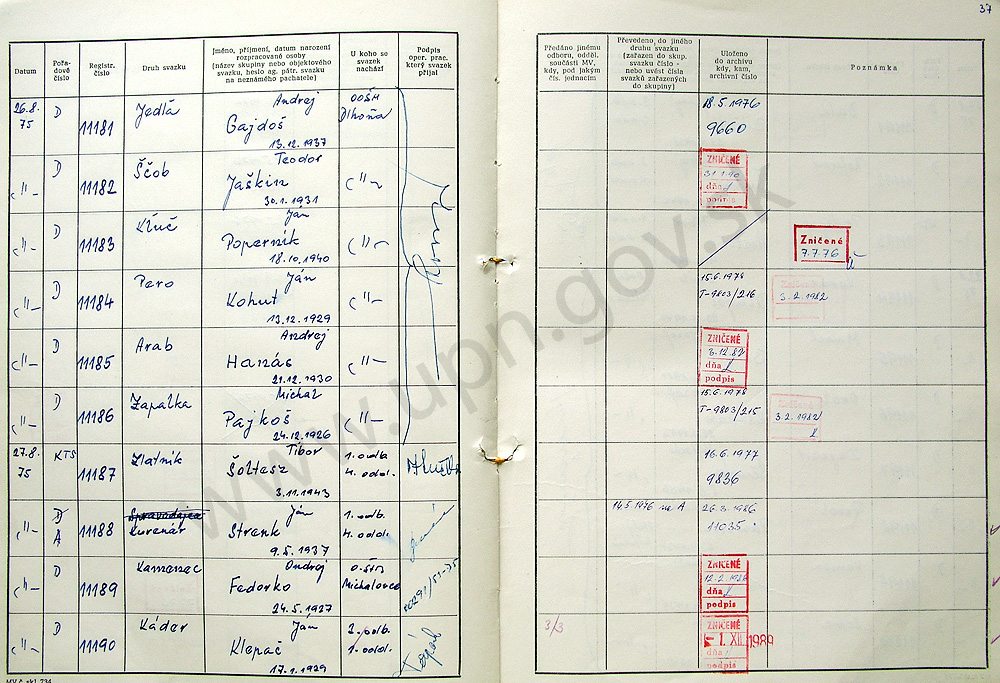 37
Datum
Pořa-
dové
číslo
Registr.
číslo
Druh svazku
Jméno, příjmení, datum narození
rozpracované osoby
(název skupiny nebo objektového
svazku, heslo ag. pátr. svazku
na neznámého pachatele)
U koho se
svazek
nachází
Podpis
oper. prac.
který svazek
přijal
Předáno jinému
odboru, odděl.
součásti MV,
kdy, pod jakým
čís. jednacím
Převedeno, do jiného
druhu svazku
(zařazen do skup.
svazku číslo -
nebo uvést čísla
svazků zařazených
do skupiny)
Uloženo
do archivu
kdy, kam,
archivní číslo
Poznámka
26.8.
75
D
11181
Jedlá
Andrej
Gajdoš
13.12.1937
OOŠM
Dlhoňa
18.5.1976
9660
-"-
D
11182
Ščob
Teodor
Jaškin
30.1.1931
-"-
ZNIČENÉ
31.1.90
dňa
podpis
-"-
D
11183
Kľúč
Ján
Poperník
18.10.1940
-"-
Zničené
7.7.76
-"-
D
11184
Pero
Ján
Kohut
13.12.1929
-"-
15.6.1978
T-9803/216
Zničené
3.2.1982
-"-
D
11185
Arab
Andrej
Hanás
21.12.1930
-"-
ZNIČENÉ
3.12.82
dňa
podpis
-"-
D
11186
Zapalka
Michal
Pajkoš
24.12.1926
-"-
15.6.1978
T-9803/215
3.2.1982
27.8.
75
KTS
11187
Zlatník
Tibor
Šoltesz
3.11.1943
1. odb.
4. odd.
16.6.1977
9836
-"-
D
A
11188
Spravodajca
Kurenár
Ján
Strenk
9.5.1937
1. odb.
4. odd.
14.5.1976 na A
26.3.1986
11035
-"-
D
11189
Kamenec
Ondrej
Fedorko
24.5.1927
Michalovce
ZNIČENÉ
dňa
podpis
-"-
D
11190
Káder
Ján
Klepač
17.1.1929
2. odb.
1. odd.
3/3
ZNIČENÉ
1. XII. 1989
dňa
podpis
www.upn.gov.sk